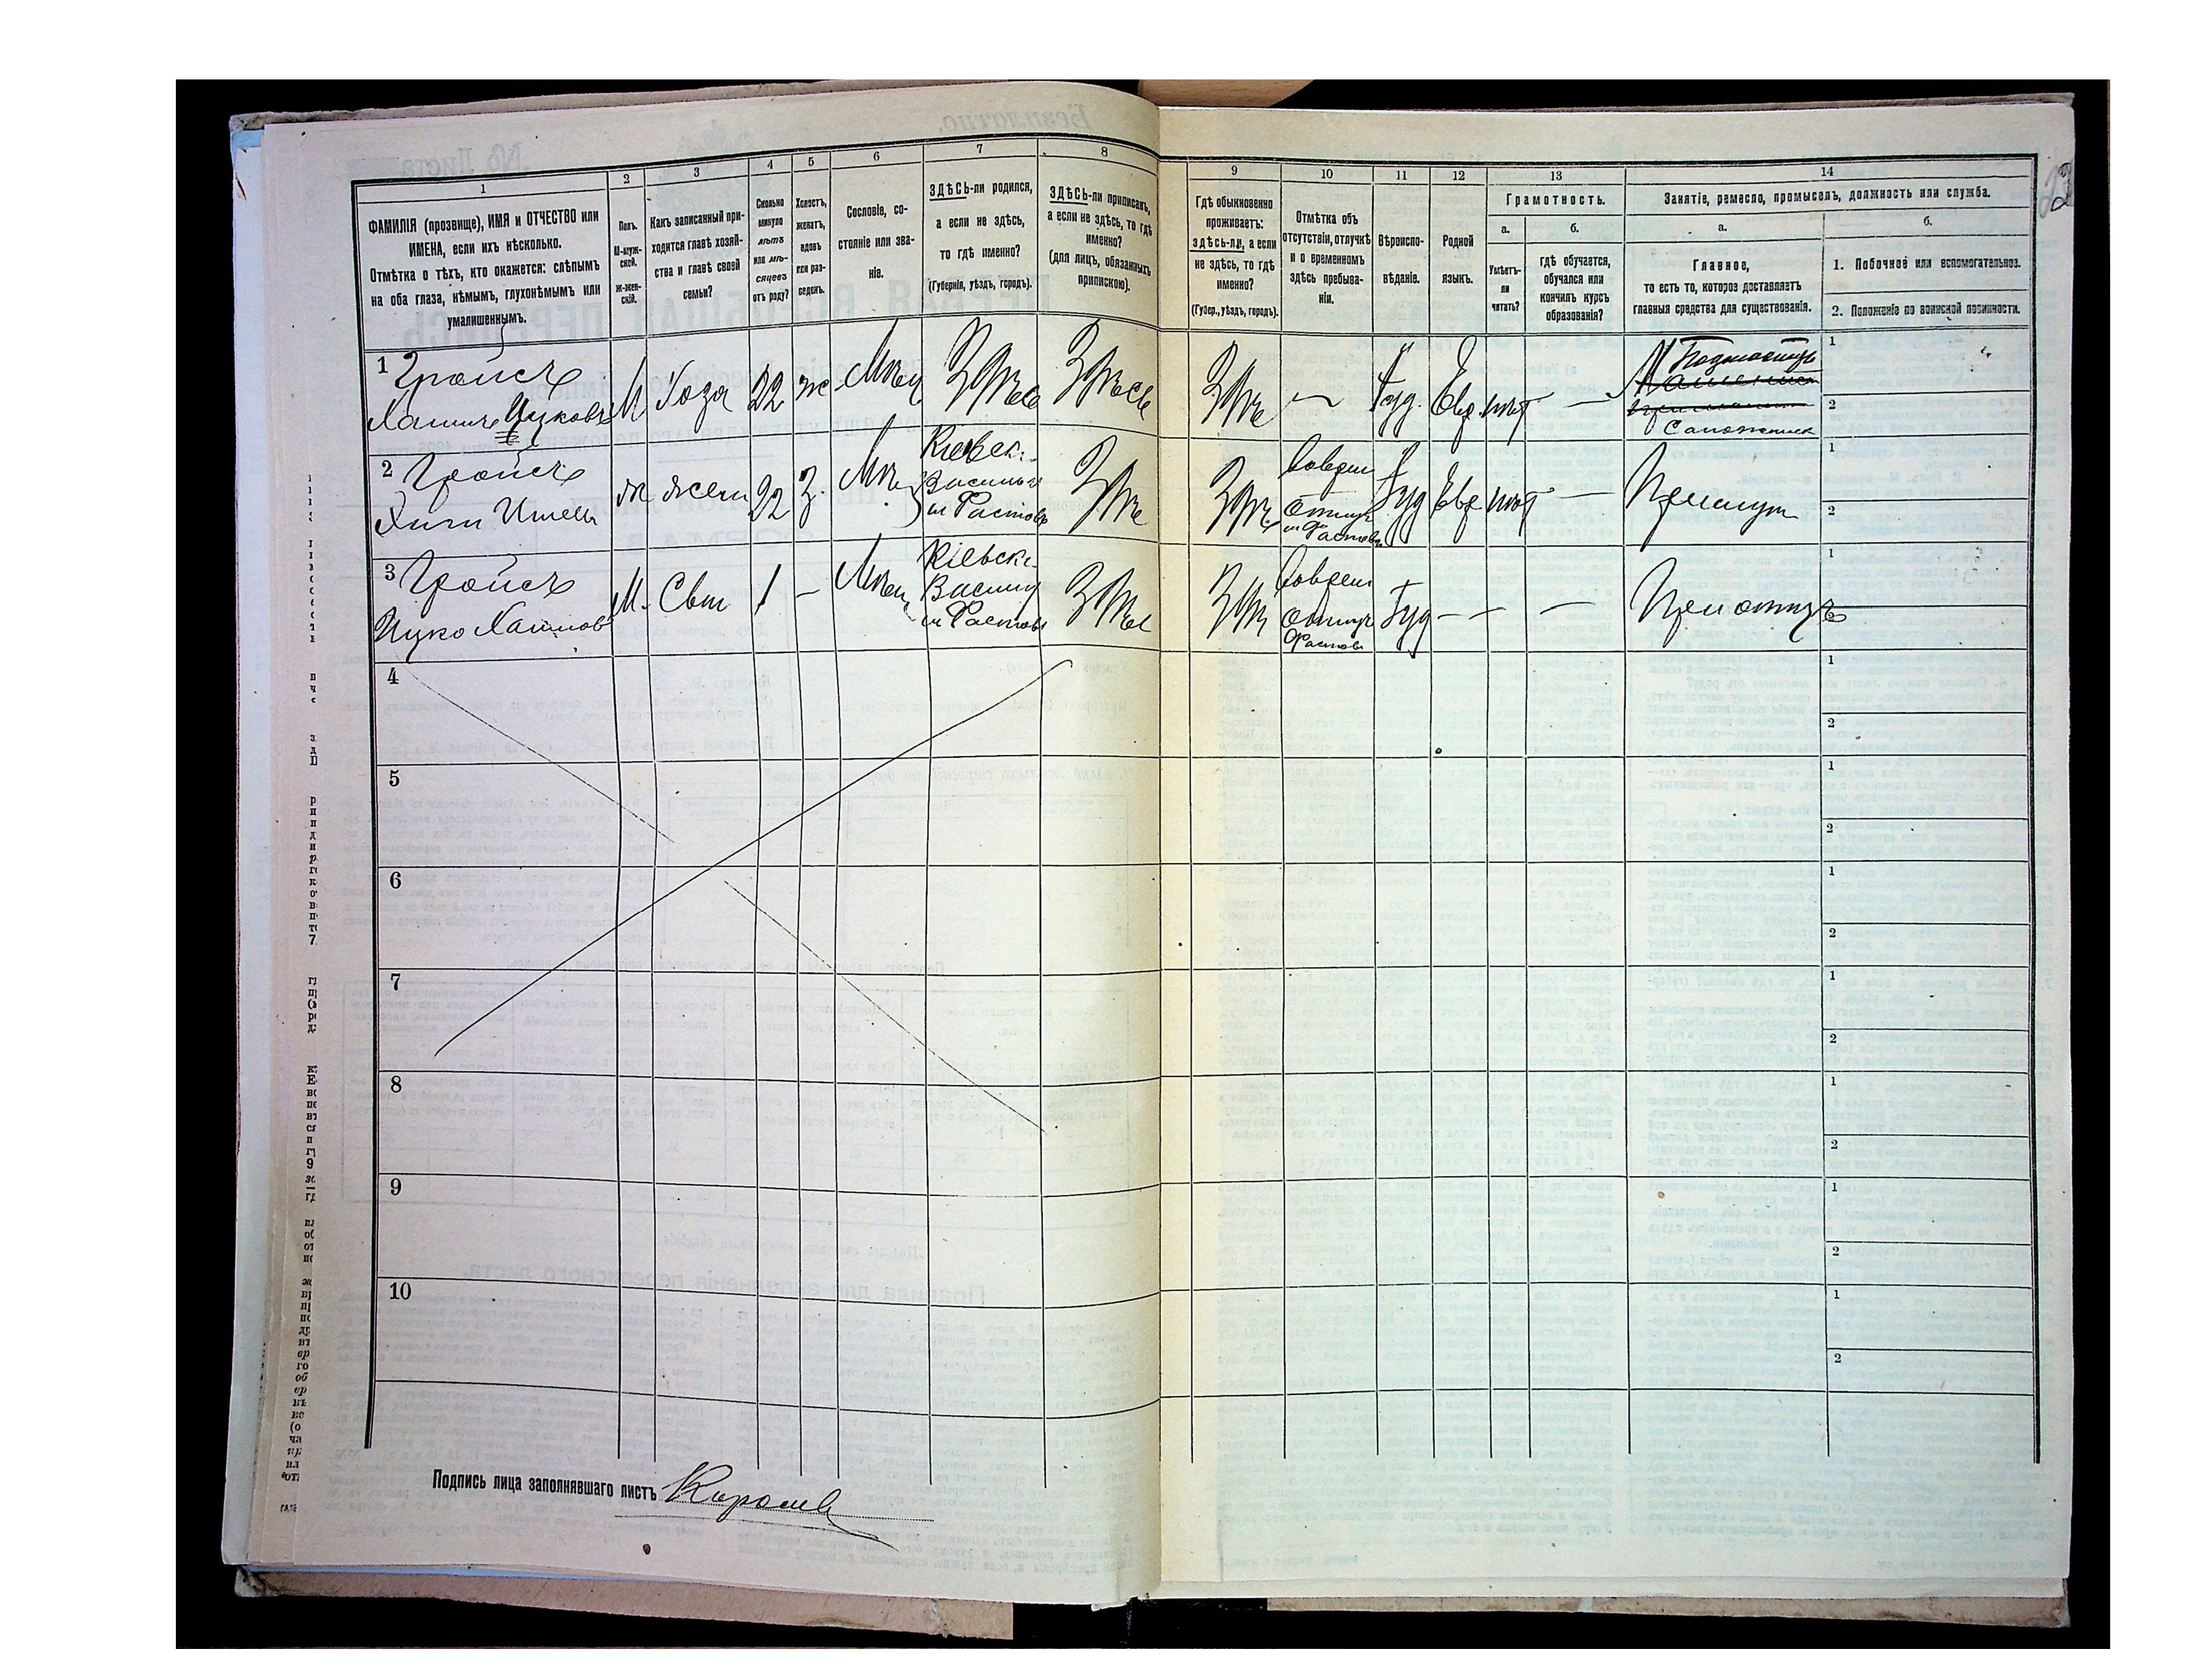 1
2
3
4
5
6
7
8
ФАМИЛІЯ (прозвище), ИМЯ и ОТЧЕСТВО или
ИМЕНА, если ихъ нѣсколько.
Отмѣтка о тѣхъ, кто окажется: слѣпымъ
на оба глаза, нѣмымъ, глухонѣмымъ или
умалишеннымъ.
Полъ.
М-муж-
ской.
Ж-жен-
скій.
Какъ записанный при-
ходится главѣ хозяй-
ства и главѣ своей
семьи?
Сколько
минуло
лѣтъ
или мѣ-
сяцевъ
отъ роду?
Холостъ,
женатъ,
вдовъ
или раз-
веденъ.
Сословіе, со-
стояніе или зва-
ніе.
ЗДѢСЬ-ли родился,
а если не здѣсь,
то гдѣ именно?
(Губернія, уѣздъ, городъ).
ЗДѢСЬ-ли приписанъ,
а если не здѣсь, то гдѣ
именно?
(для лицъ, обязанныхъ
припискою).
9
10
11
12
13
14
Гдѣ обыкновенно
проживаетъ:
здѣсь-ли, а если
не здѣсь, то гдѣ
именно?
(Губер., уѣздъ, городъ).
Отмѣтка объ
отсутствіи, отлучкѣ
и о временномъ
здѣсь пребыва-
ніи.
Вѣроиспо-
вѣданіе.
Родной
языкъ.
Грамотность.
а.
Умѣетъ-
ли
читать?
б.
гдѣ обучается,
обучался или
кончилъ курсъ
образованія?
Занятіе, ремесло, промыселъ, должность или служба.
а.
Главное,
то есть то, которое доставляетъ
главныя средства для существованія.
б.
1. Побочное или вспомогательное.
2. Положеніе по воинской повинности.
1 Гройсъ
Хаимъ Ицковъ
М Хоза 22 ж Мѣщ Здѣсь Здѣсь
Здѣ — Іуд. Евр. нѣт —
Сапожник
1
2
2 Гройсъ
ж жена 22 З. Мѣщ
Кіевск.
Васильк
м Фастовъ
Здѣ
Здѣ
м Фастовъ
Іуд Евр нѣт —
При муж
1
2
3 Гройсъ
Ицко Хаимовъ
М. Сын 1 — Мѣщ
Кіевск.
Васильк
м Фастовъ
Здѣ
Здѣ
Фастовъ
Іуд — — —
При отцѣ
1
4
1
2
5
1
2
6
1
2
7
1
2
8
1
2
9
1
2
10
1
2
Подпись лица заполнявшаго листъ